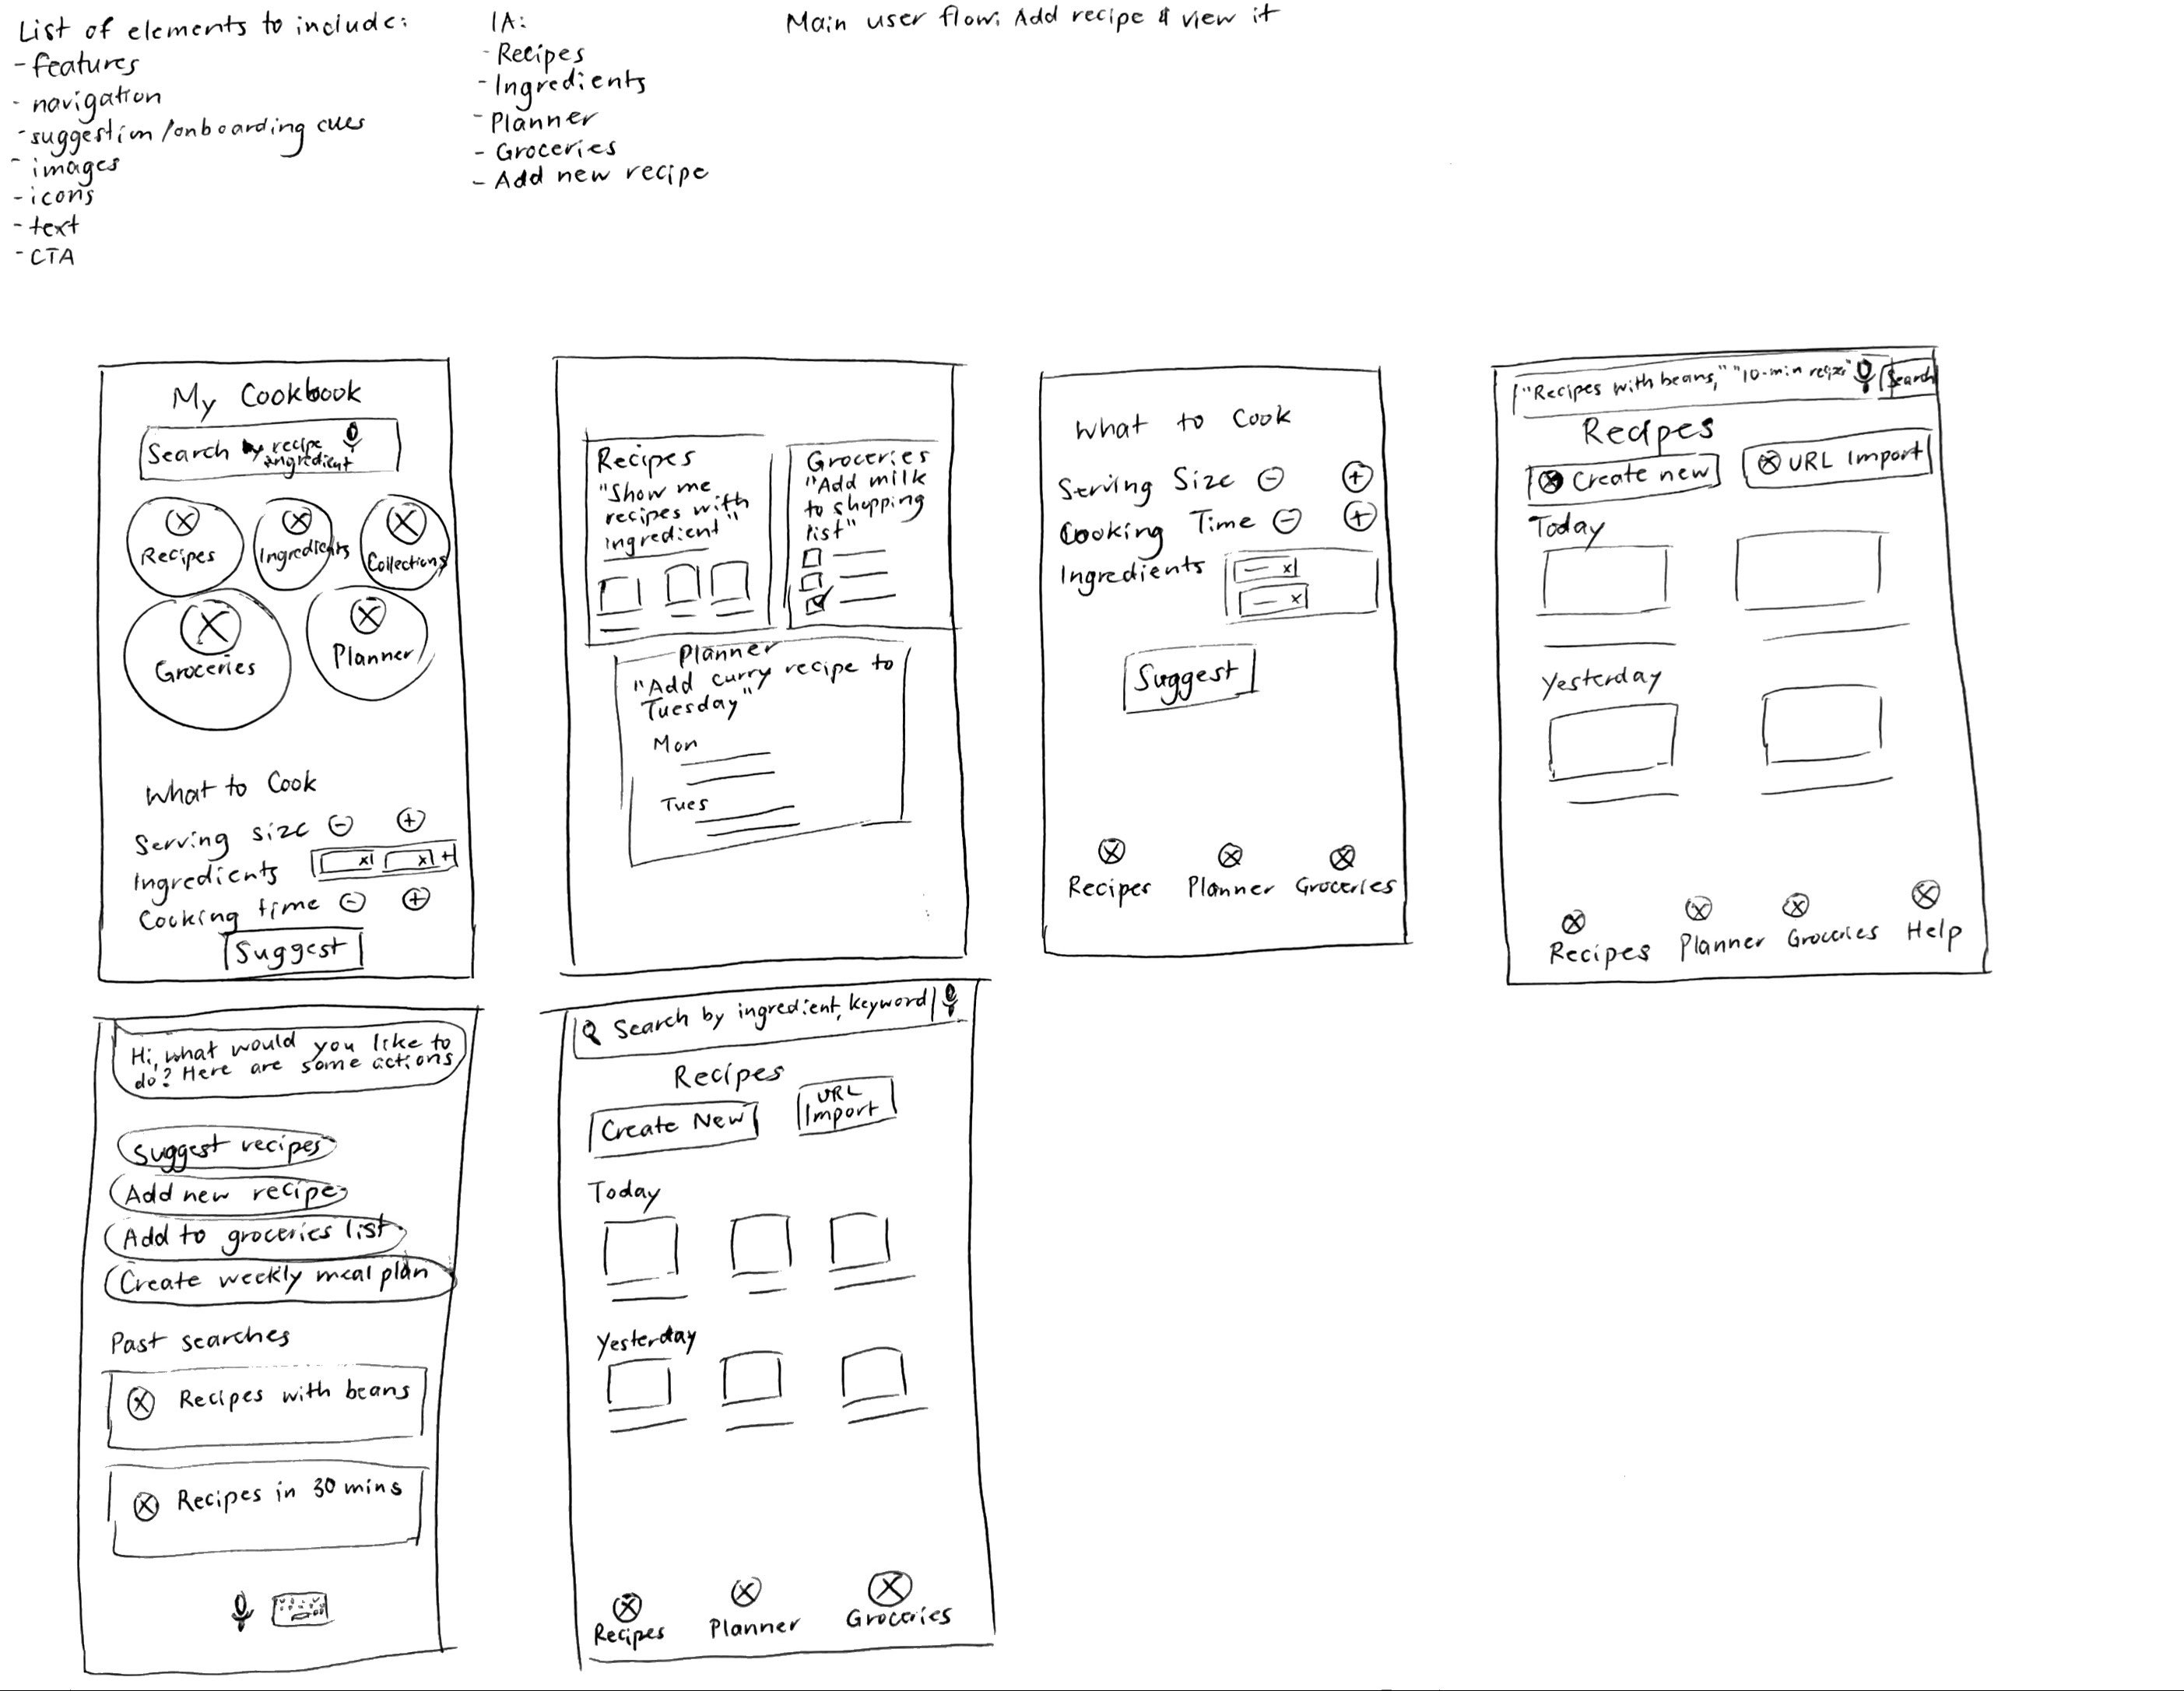 List of elements to include:
- features
- navigation
- suggestion/onboarding cues
- images
- icons
- text
- CTA
IA:
- Recipes
- Ingredients
- Planner
- Groceries
- Add new recipe
Main user flow: Add recipe & view it
My Cookbook
Search by recipe
ingredient
Recipes
Ingredients
Collections
Groceries
Planner
What to Cook
Serving size
Ingredients
Cooking time
Suggest
Recipes
"Show me
recipes with
ingredient"
Groceries
"Add milk
to shopping
list"
Planner
"Add curry recipe to
Tuesday"
Mon
Tues
What to Cook
Serving Size
Cooking Time
Ingredients
Suggest
Recipes Planner Groceries
"Recipes with beans," "10-min recipe" Search
Recipes
Create new
URL Import
Today
Yesterday
Recipes Planner Groceries Help
Hi, what would you like to
do? Here are some actions
Suggest recipes
Add new recipe
Add to groceries list
Create weekly meal plan
Past searches
Recipes with beans
Recipes in 30 mins
Search by ingredient, keyword
Recipes
Create New
URL
Import
Today
Yesterday
Recipes Planner Groceries